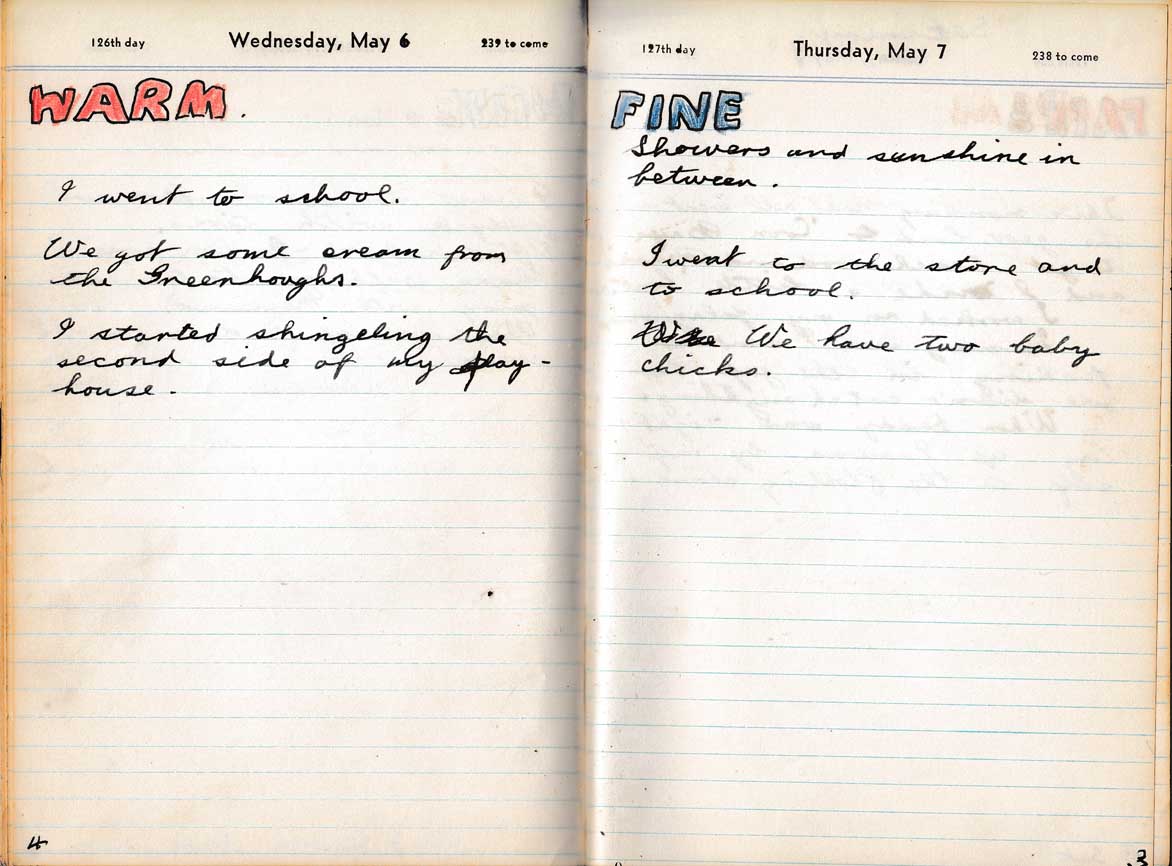 126th day Wednesday, May 6 239 to come
WARM.
I went to school.
We got some cream from
the Greenhoughs.
I started shingeling the
second side of my play-
house.
4
127th day Thursday, May 7 238 to come
FINE
Showers and sunshine in
between.
I went to the store and
to school.
We have two baby
chicks.
3